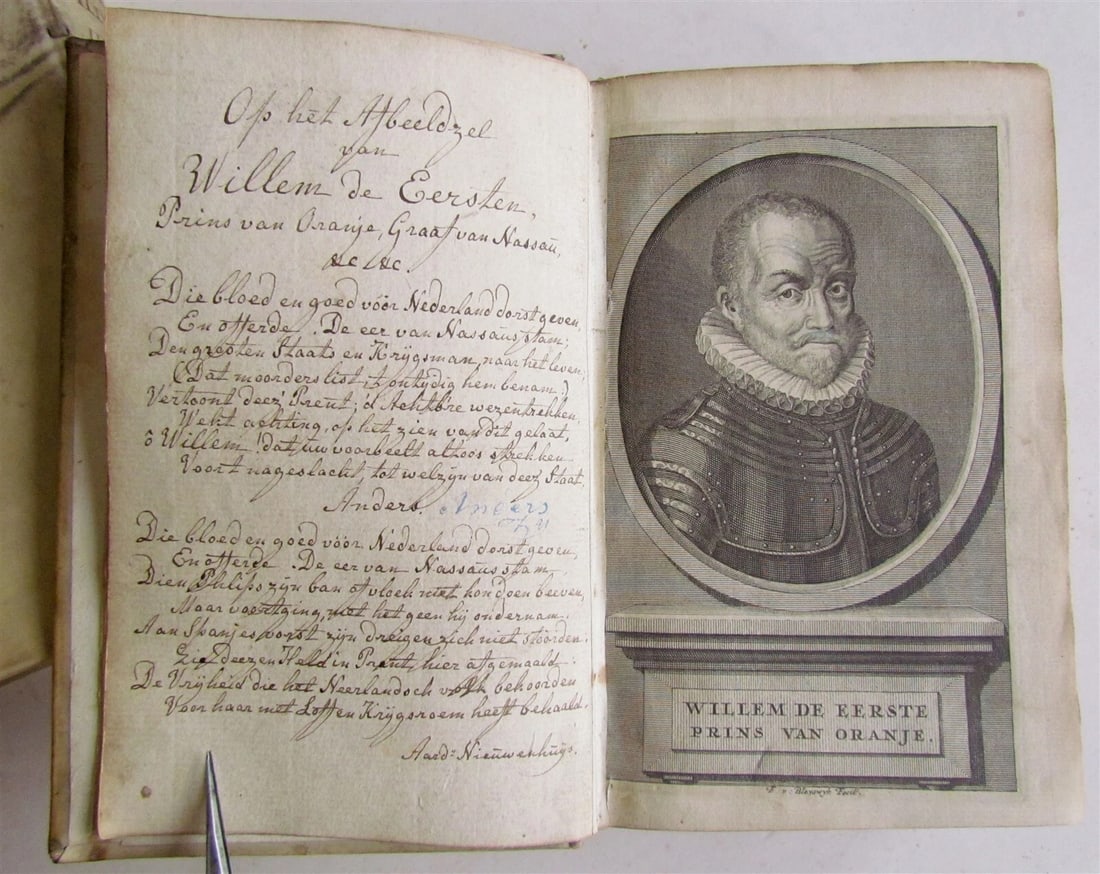 Op het Afbeeldzel
van
Willem de Eersten,
Prins van Oranje, Graaf van Nassau,
&c &c.
Die bloed en goed vóór Nederland dorst geven,
En offerde. De eer van Nassaus stam;
Den grooten Staats en Krijgsman, naar het leven,
(Dat moorders list, t' ontydig hem benam.)
Vertoont deez' Prent; d' Achtb're wezentrekken,
Wekt achting, op het zien van dit gelaat,
ô Willem! dat uw voorbeelt altoos strekken
Voort nageslacht, tot welzijn van deez' Staat.
Anders. Anders
Die bloed en goed vóór Nederland dorst geven,
En offerde. De eer van Nassaus stam,
Dien Philips zijn ban of vloek niet kon doen beeven,
Maar voortging, met het geen hij ondernam.
Aan Spanjes vorst zijn dreigen zich niet stoorden.
Zie deezen Held in Prent, hier afgemaald
De Vrijheid die het Neerlandsch volk behoorden
Voor haar met Loff en Krijgsroem heeft behaald.
Aard= Nieuwenhuijs.
WILLEM DE EERSTE
PRINS VAN ORANJE.
F. v: Bleyswyk Fecit.